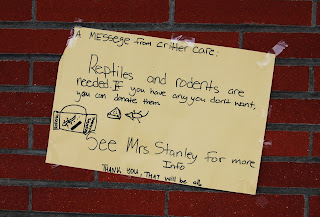 A MESSege from Critter care:
Reptiles and rodents are
needed. IF you have any you dont want,
you can donate them
See Mrs Stanley for more
Info
THANK YOU, THAT will be all